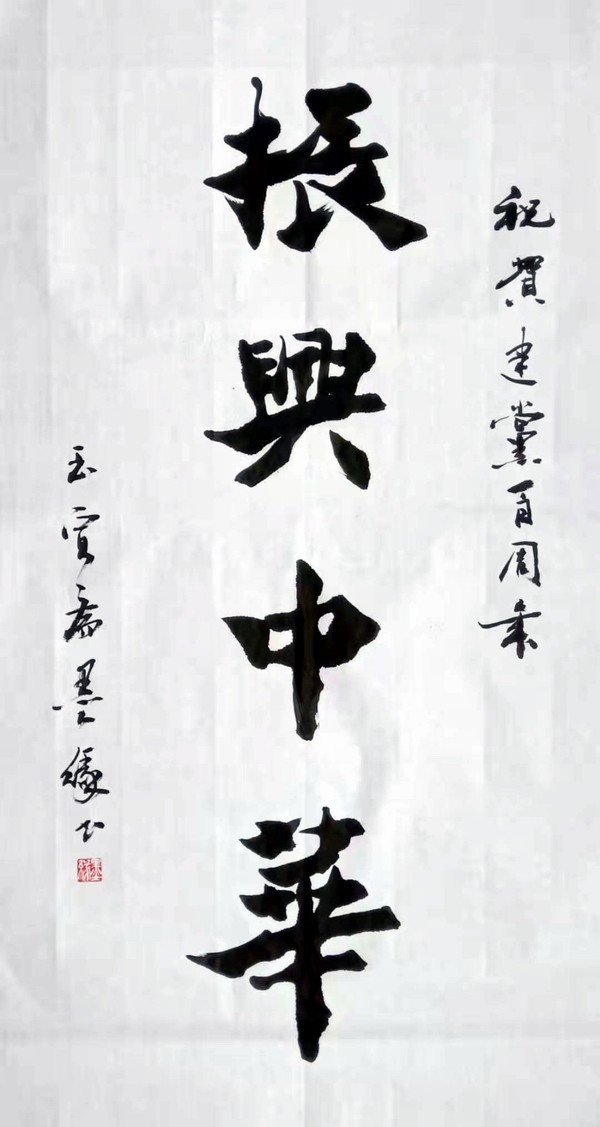 祝賀建黨百周年
振興中華
玉寶齋墨緣书